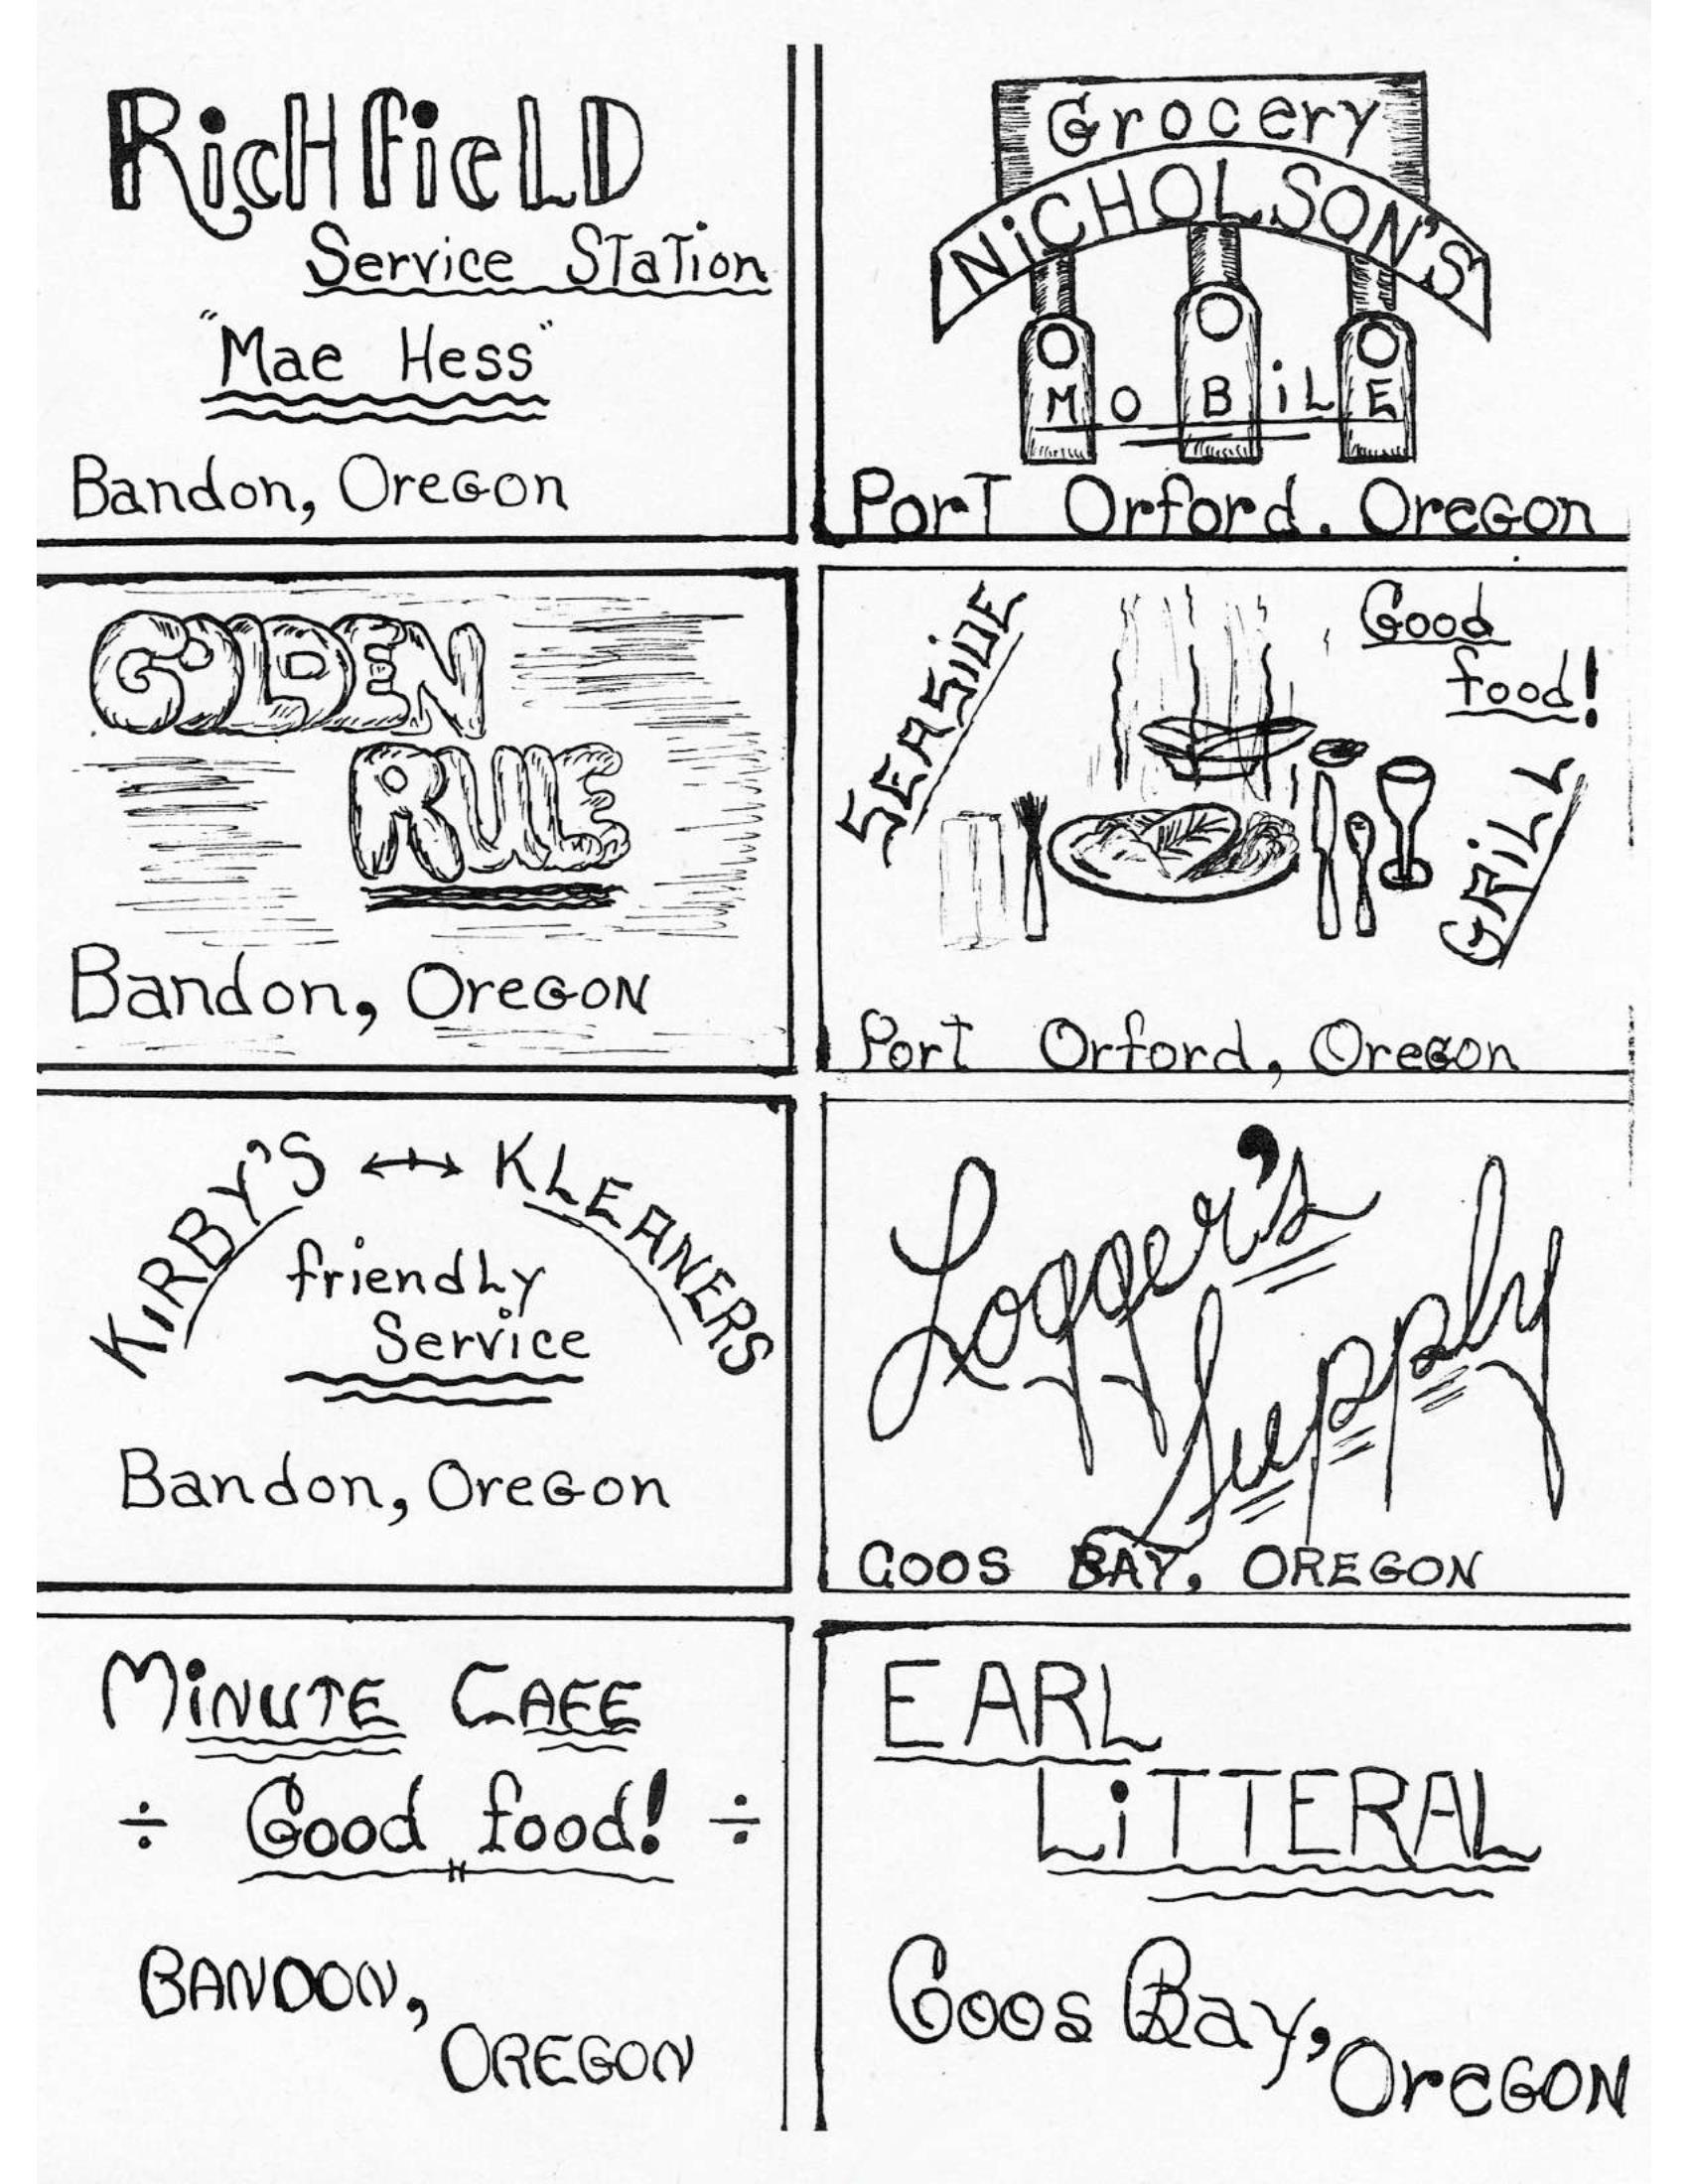 RicHfieLD
Service STaTion
"Mae Hess"
Bandon, OreGon
Grocery
NiCHOLSON'S
MOBiLE
PorT Orford, OreGon
GOLDEN
RULE
Bandon, OreGON
SEASiDE
Good
food!
GRiLL
Port Orford, Oregon
KiRBY'S ↔ KLEANERS
friendLy
Service
Bandon, OreGon
Logger's
Supply
COOS BAY, OREGON
MiNUTE CAFE
÷ Good food! ÷
BANDON,
OREGON
EARL
LiTTERAL
Coos Bay,
OreGON